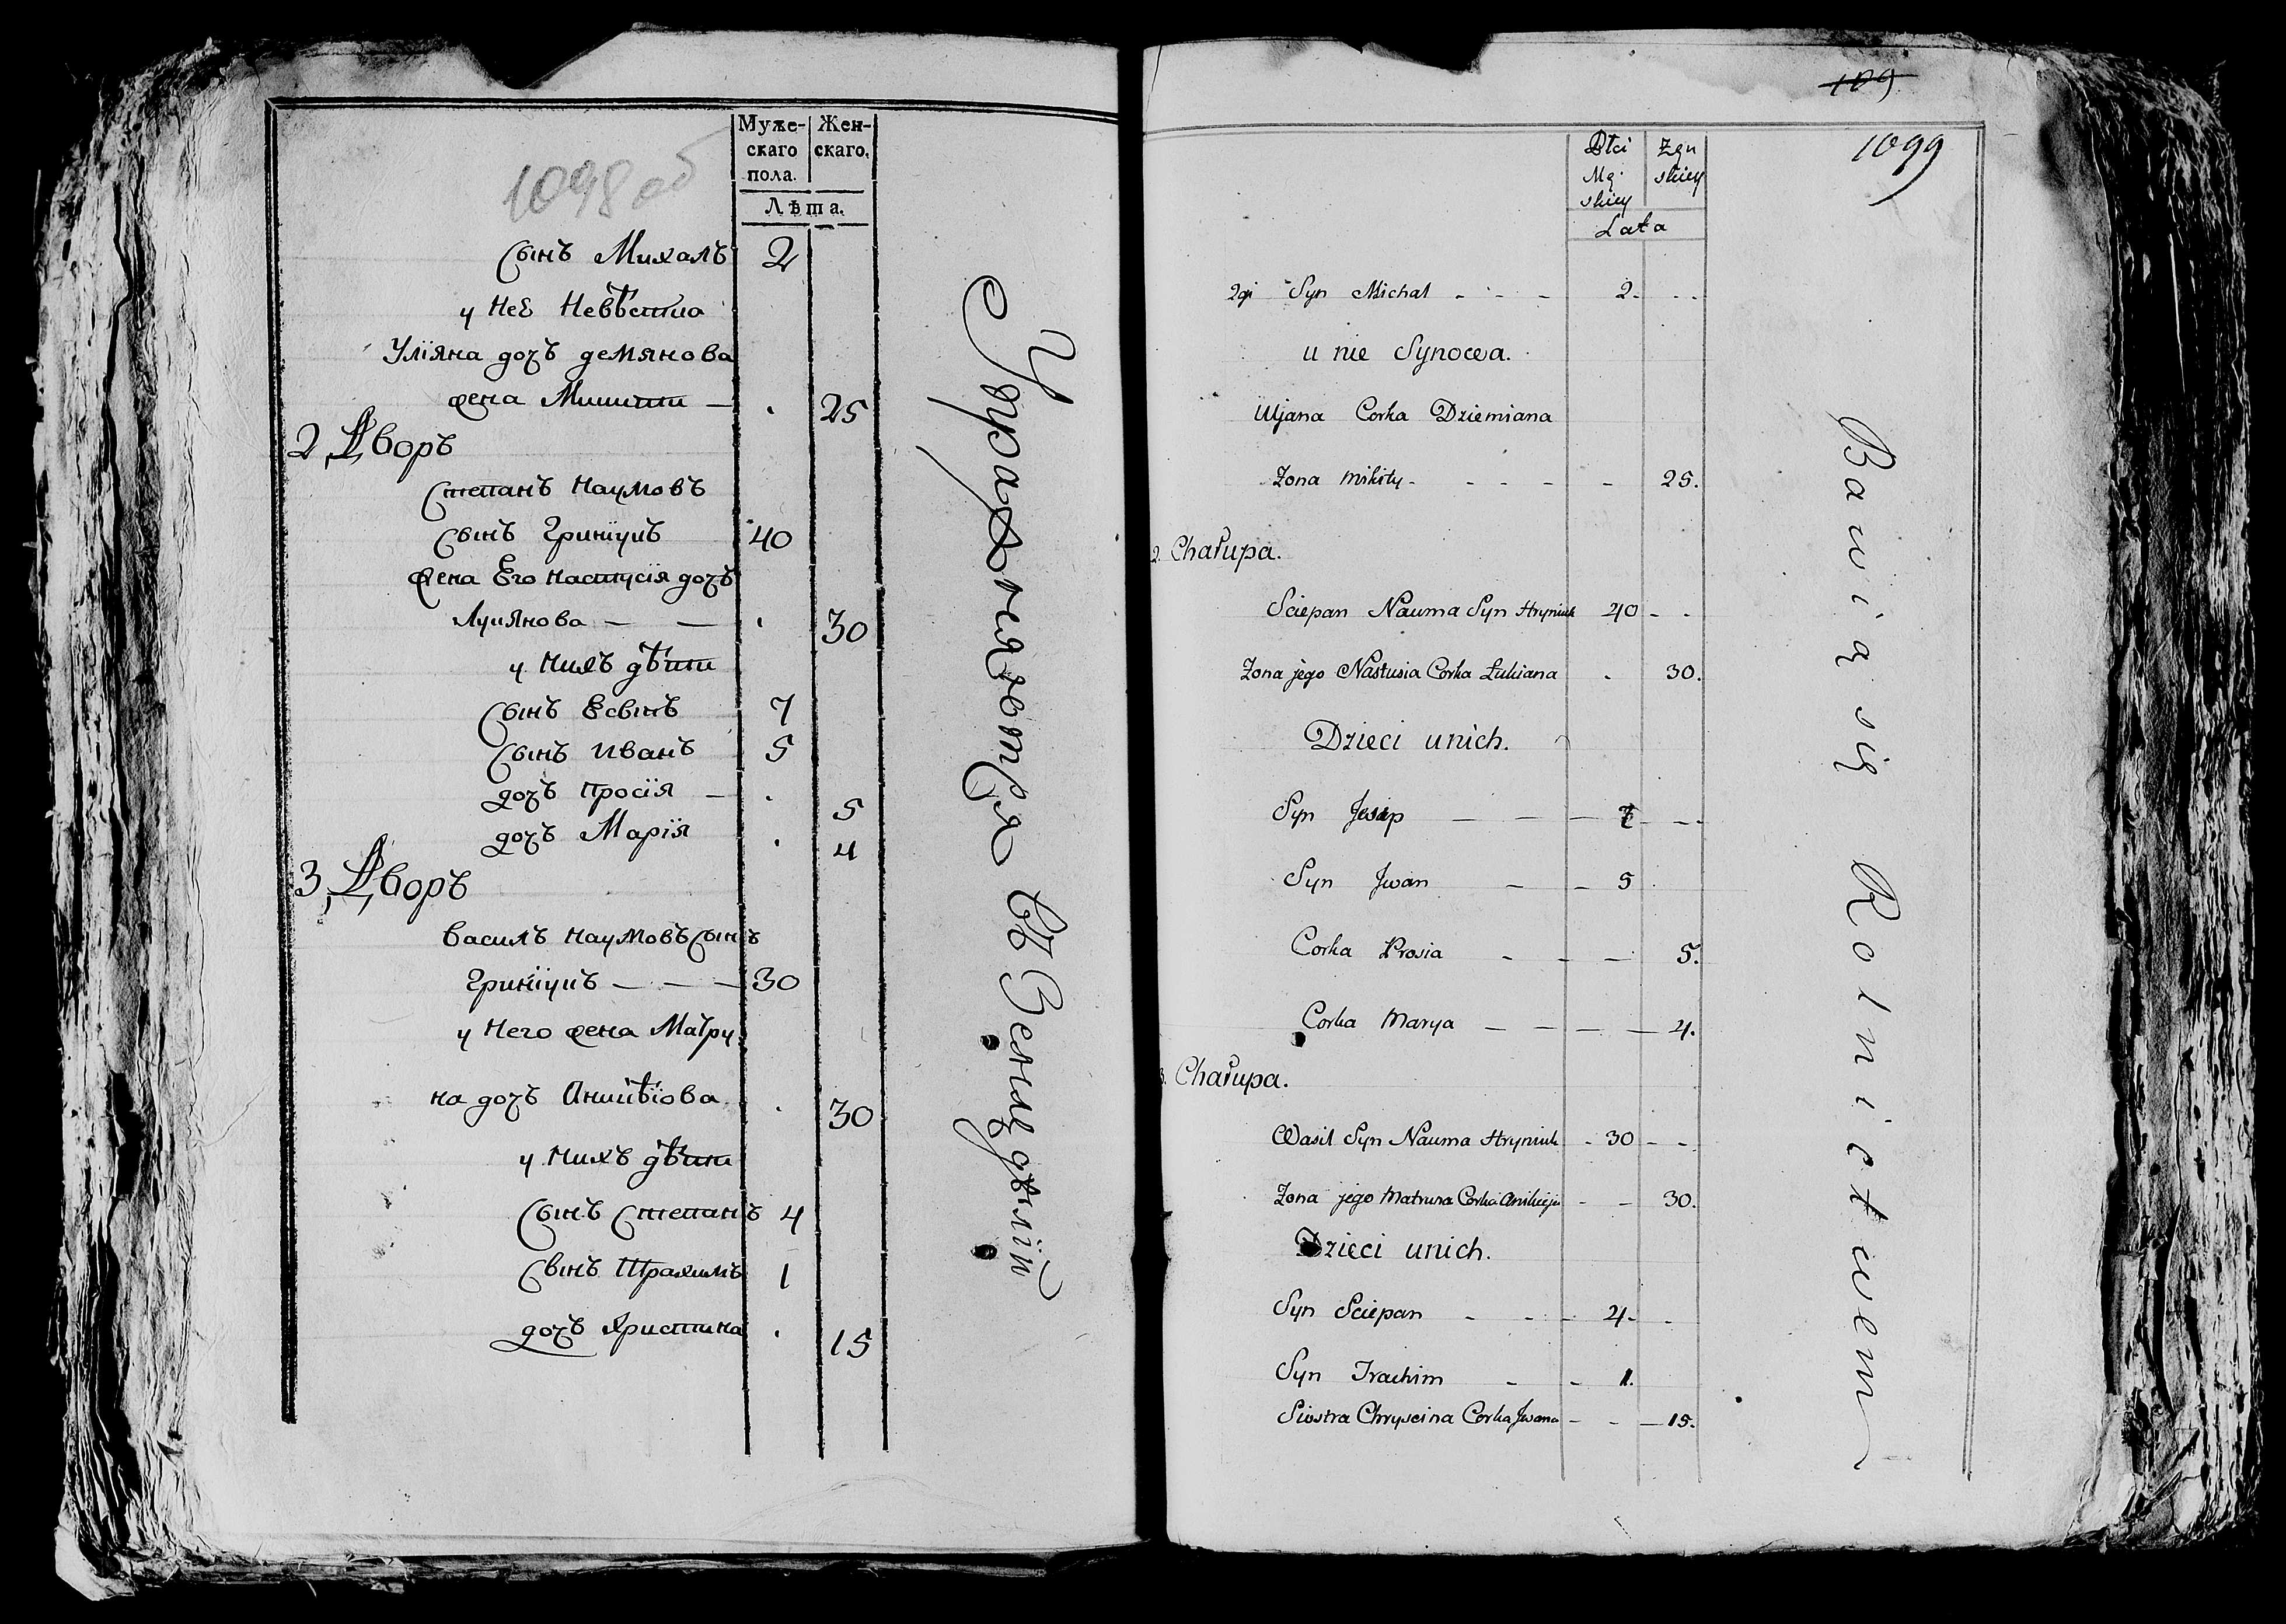 1098 об
Муже-
скаго
пола.
Жен-
скаго.
Лѣта.
Сынъ Михалъ 2
у Неё Невѣстка
Улїяна дочь демянова
жена Микити — . 25
2, Дворъ
Степанъ Наумовъ
Сынъ Гринїукъ 40
жена Его Настусїя дочь
Лукянова — — . 30
у Нихъ дѣти
Сынъ Есипъ 7
Сынъ Иванъ 5
дочь Просїя — . 5
дочь Марїя . 4
3, Дворъ
Василъ Наумовъ Сынъ
Гринїукъ — — — 30
у Него жена Матру
на дочь Аникѣїова . 30
у Нихъ дѣти
Сынъ Степанъ 4
Сынъ Трахимъ 1
дочь Христина . 15
Упражняются
въ Земледѣлїи
109
1099
Płci
Mę-
skiey
Żeń
skiey
Lata
2gi Syn Michał - - - 2. - -
u nie Synowa.
Uljana Corka Dziemiana
Żona Mikity - - - - - 25.
2. Chałupa.
Sciepan Nauma Syn Hryniuk 40 - -
Żona jego Nastusia Corka Łukiana . 30.
Dzieci unich.
Syn Jesip — — — 7 — -
Syn Jwan — - 5 .
Corka Prosia - - — 5.
Corka Marya — — — — 4.
3. Chałupa.
Wasil Syn Nauma Hryniuk - 30 - -
Żona jego Matruna Corka Anikieja - - 30.
Dzieci unich.
Syn Sciepan - - - 4. -
Syn Trachim - - 1.
Siostra Chryscina Corka Jwana - - — 15.
Bawią się Rolnictwem